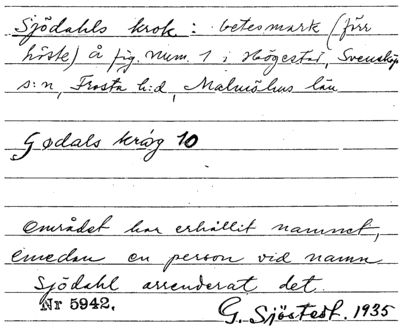 Sjödahls krok : betesmark (förr
höste) å fig. num. 1 i Högestad, Svensköp
s:n, Frosta h:d, Malmöhus län
Gødals kråg 10
Området har erhållit namnet,
emedan en person vid namn
Sjödahl arrenderat det.
Nr 5942.
G. Sjöstedt. 1935